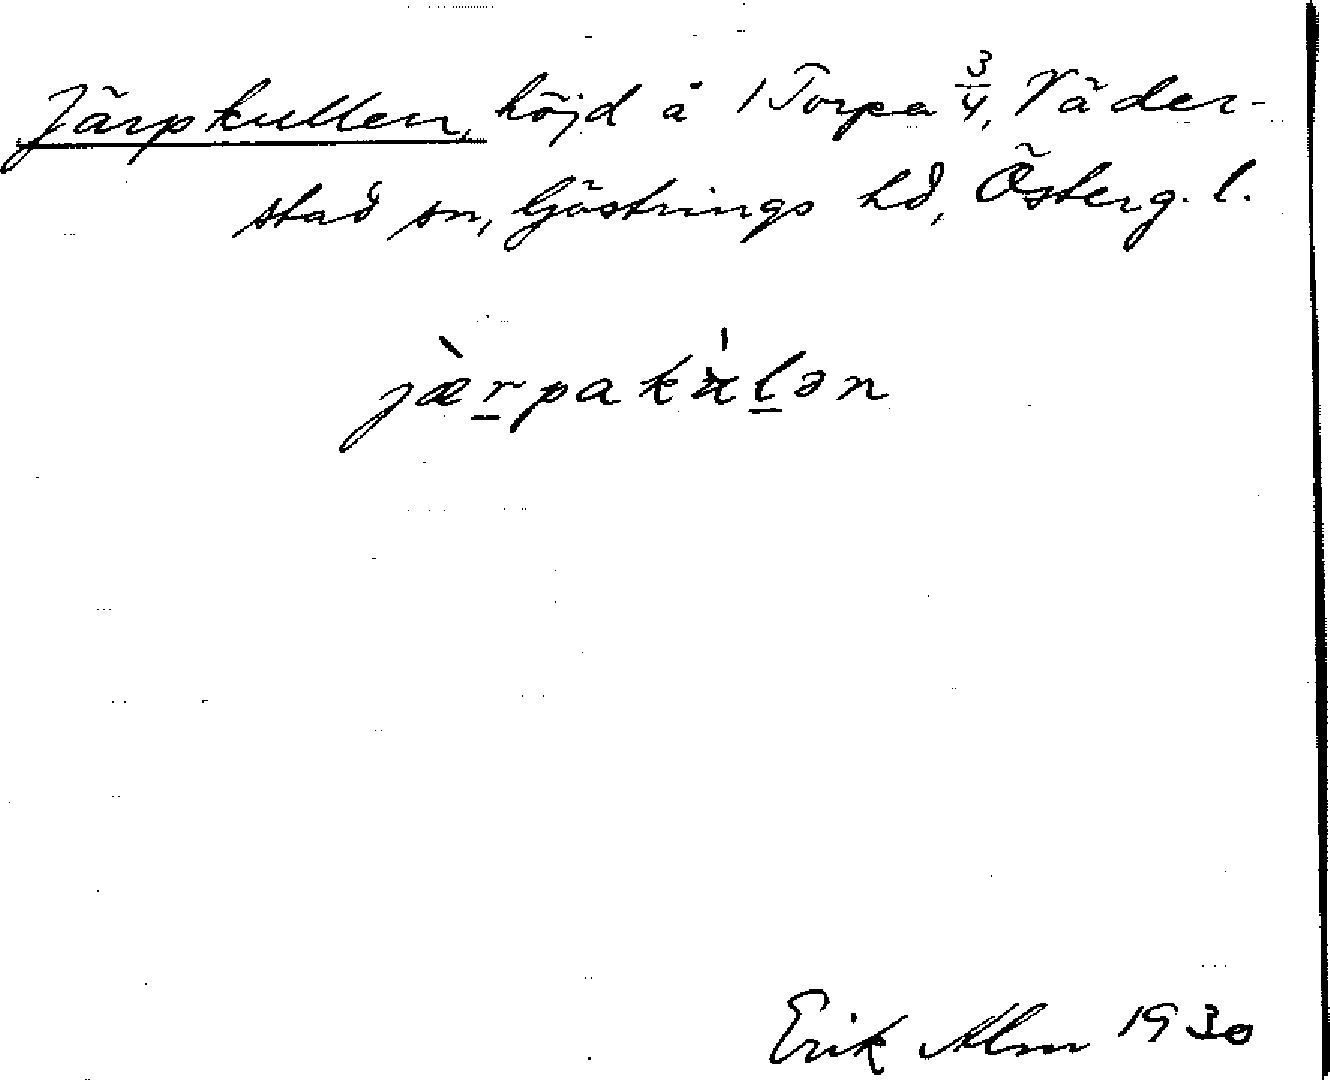 Järpkullen, höjd å 1 Torpa 3/4, Väder-
stad sn, Göstrings hd, Österg. l.
jæ̀r̠pakx̍l̠ən
Erik Alm 1930